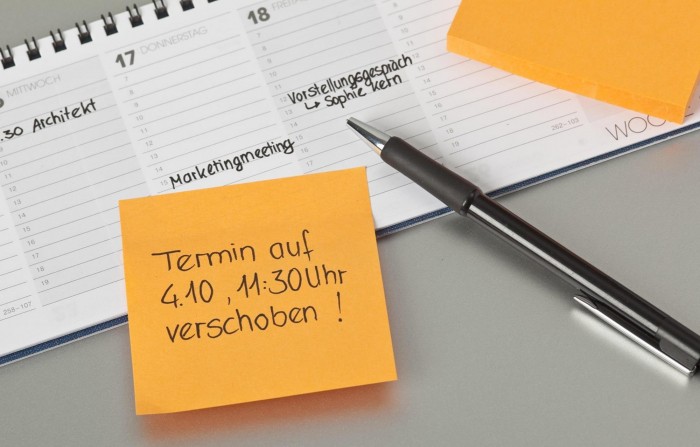 MITTWOCH
.30 Architekt
258-107
17 DONNERSTAG
Marketingmeeting
18 FREITAG
Vorstellungsgespräch
↳ Sophie Kern
WOC
Termin auf
4.10, 11:30 Uhr
verschoben!